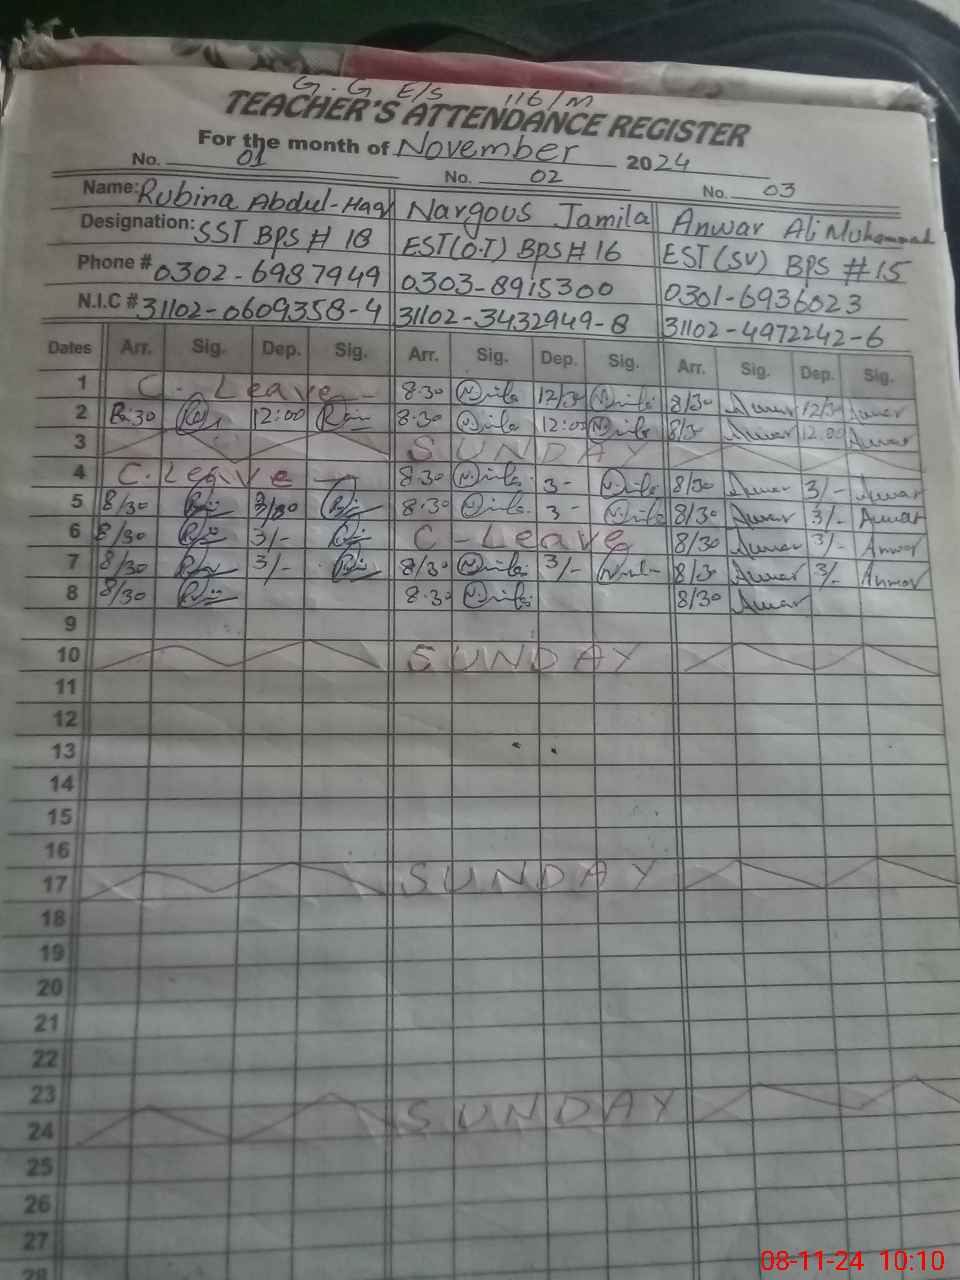 G.G E/S 116/M
TEACHER'S ATTENDANCE REGISTER
For the month of November 2024
No. 01 No. 02 No. 03
Name: Rubina Abdul-Haq Nargous Jamila Anwar Ali Muhammad
Designation: SST BPS # 18 EST(O.T) BPS # 16 EST(SV) BPS # 15
Phone # 0302-6987949 0303-8915300 0301-6936023
N.I.C # 31102-0609358-4 31102-3432949-8 31102-4972242-6
Dates Arr. Sig. Dep. Sig. Arr. Sig. Dep. Sig. Arr. Sig. Dep. Sig.
1 C-Leave 8.30 12/30 8/30 Anwar 12/30 Anwar
2 8:30 12:00 8.30 12:00 8/30 Anwar 12.00 Anwar
3 SUNDAY
4 C.Leave 8.30 3- 8/30 Anwar 3/- Anwar
5 8/30 8.30 3- 8/30 Anwar 3/- Anwar
6 8/30 3/- C-Leave 8/30 Anwar 3/- Anwar
7 8/30 3/- 8/30 3/- 8/30 Anwar 3/- Anwar
8 8/30 8.30 8/30 Anwar
9
10 SUNDAY
11
12
13
14
15
16
17 SUNDAY
18
19
20
21
22
23
24 SUNDAY
25
26
27
28
08-11-24 10:10